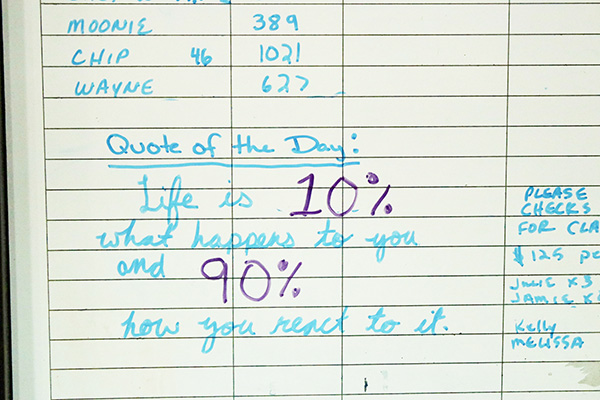 MOONIE 389
CHIP 46 1021
WAYNE 627
Quote of the Day:
Life is 10%
what happens to you
and 90%
how you react to it.
PLEASE
CHECKS
FOR
$125
JULIE X3
JAMIE
Kelly
MELISSA